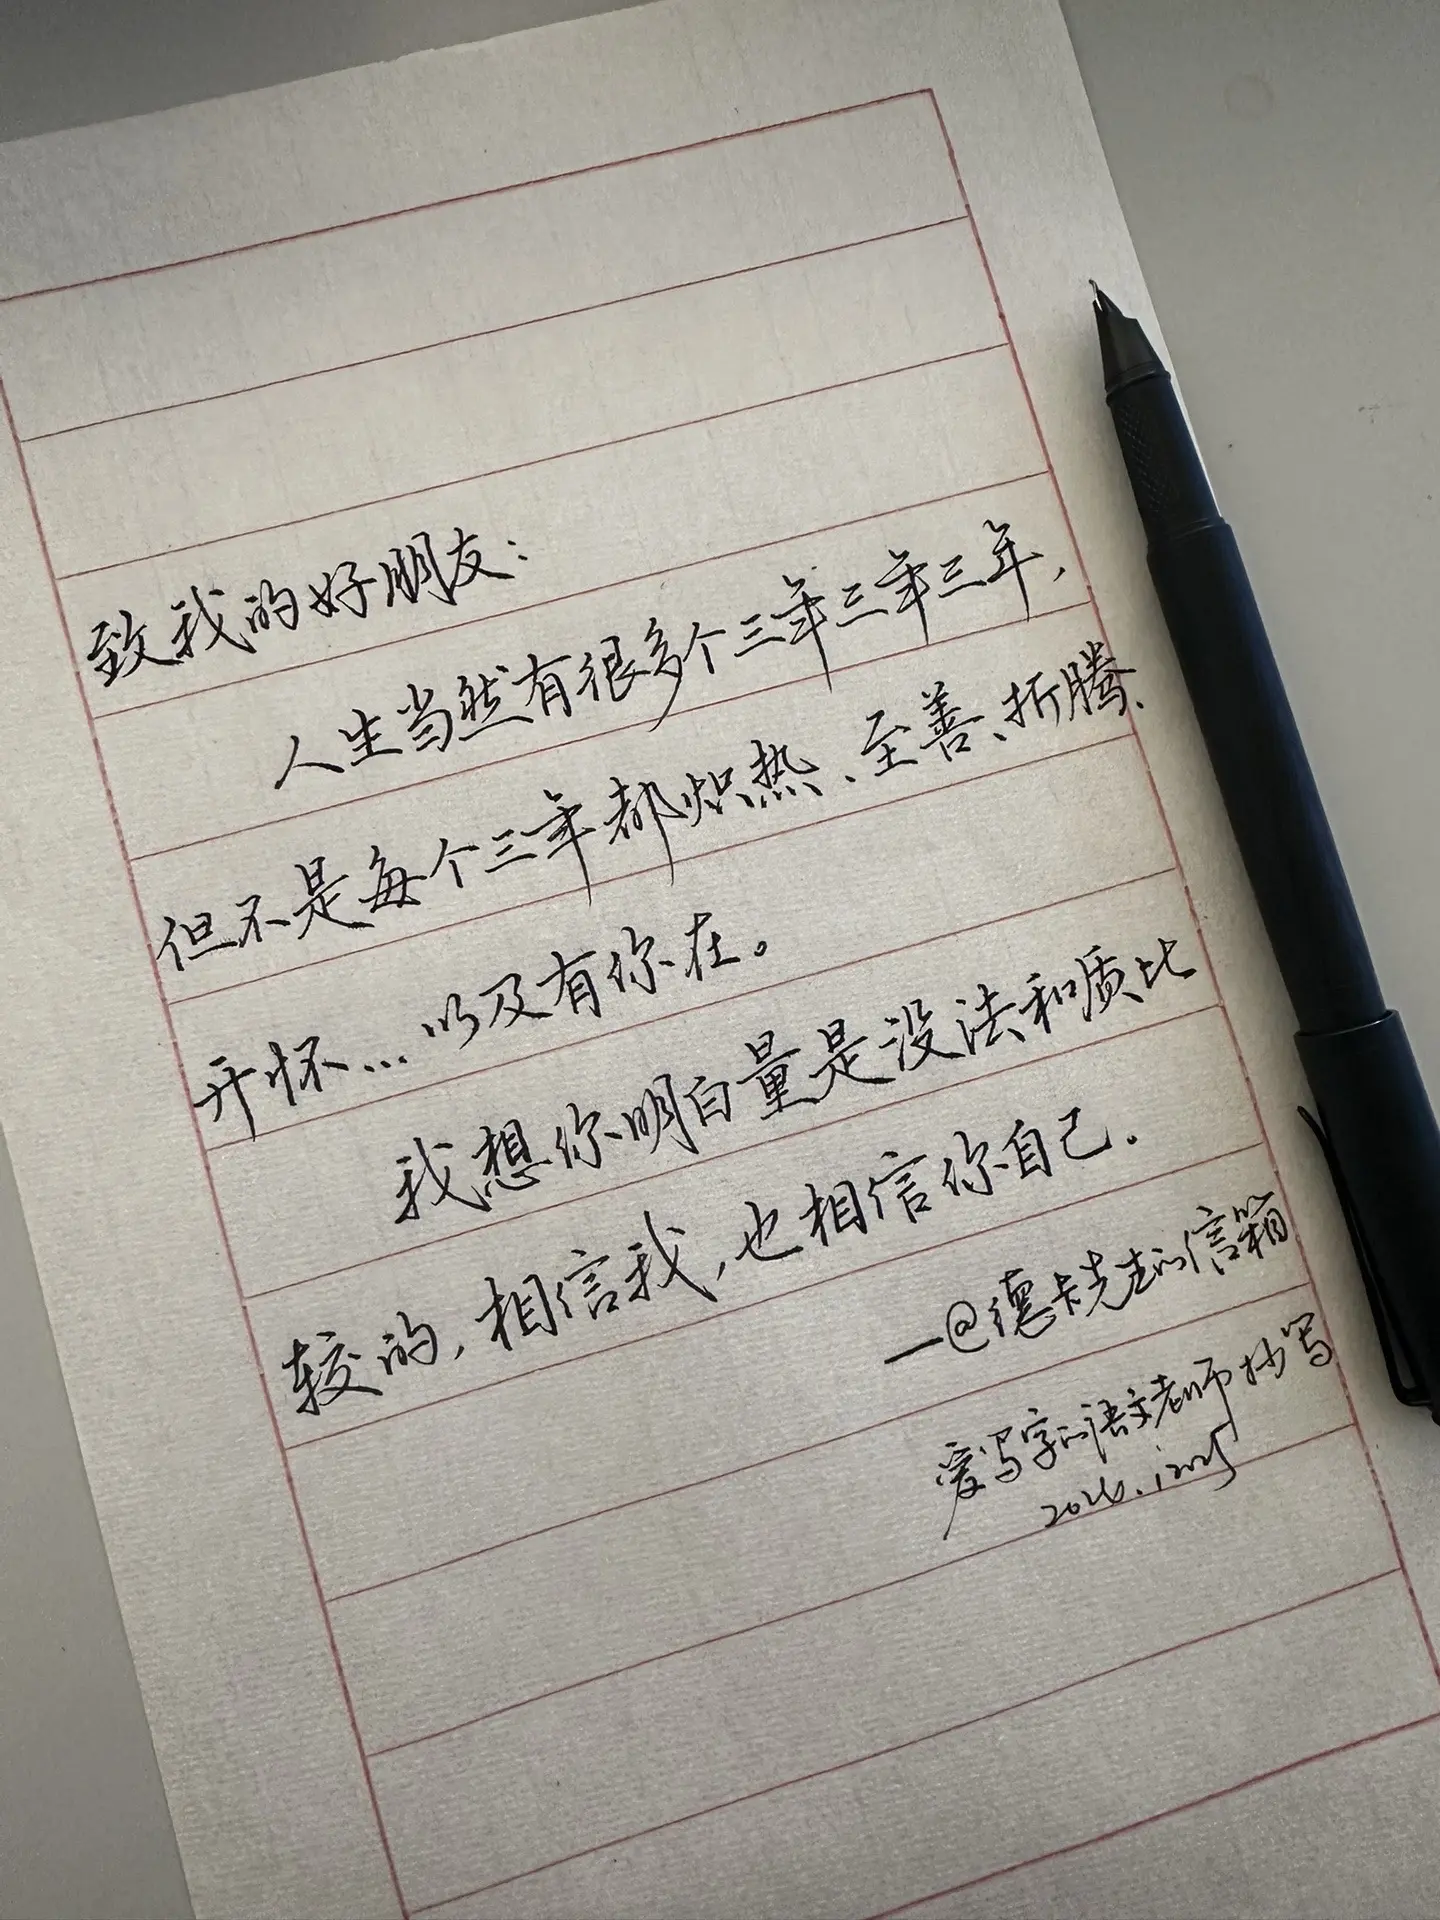 致我的好朋友：
人生当然有很多个三年三年三年，
但不是每个三年都炽热、至善、折腾、
开怀…以及有你在。
我想你明白量是没法和质比
较的，相信我，也相信你自己.
—@德卡先生的信箱
爱写字的语文老师抄写